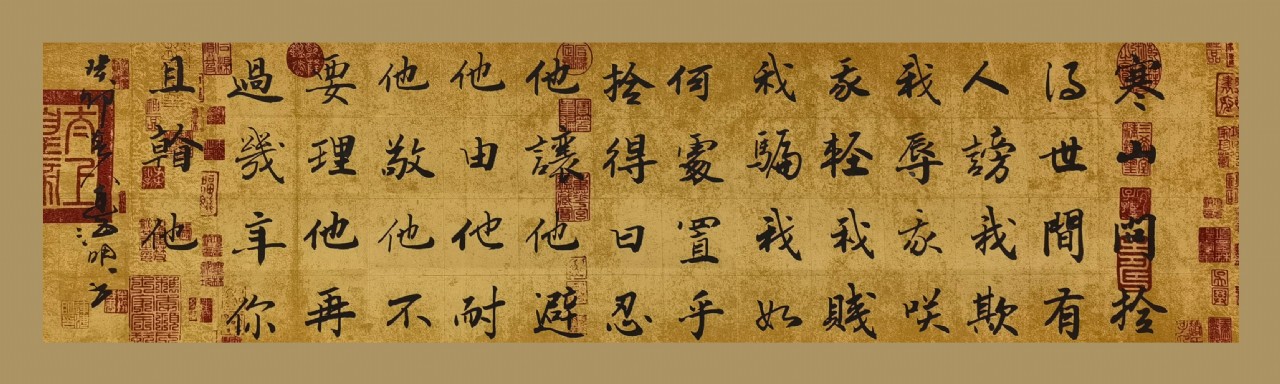 寒山問捨
得世間有
人謗我欺
我辱我咲
我輕我賤
我騙我如
何處置乎
捨得曰忍
他讓他避
他由他耐
他敬他不
要理他再
過幾年你
且看他